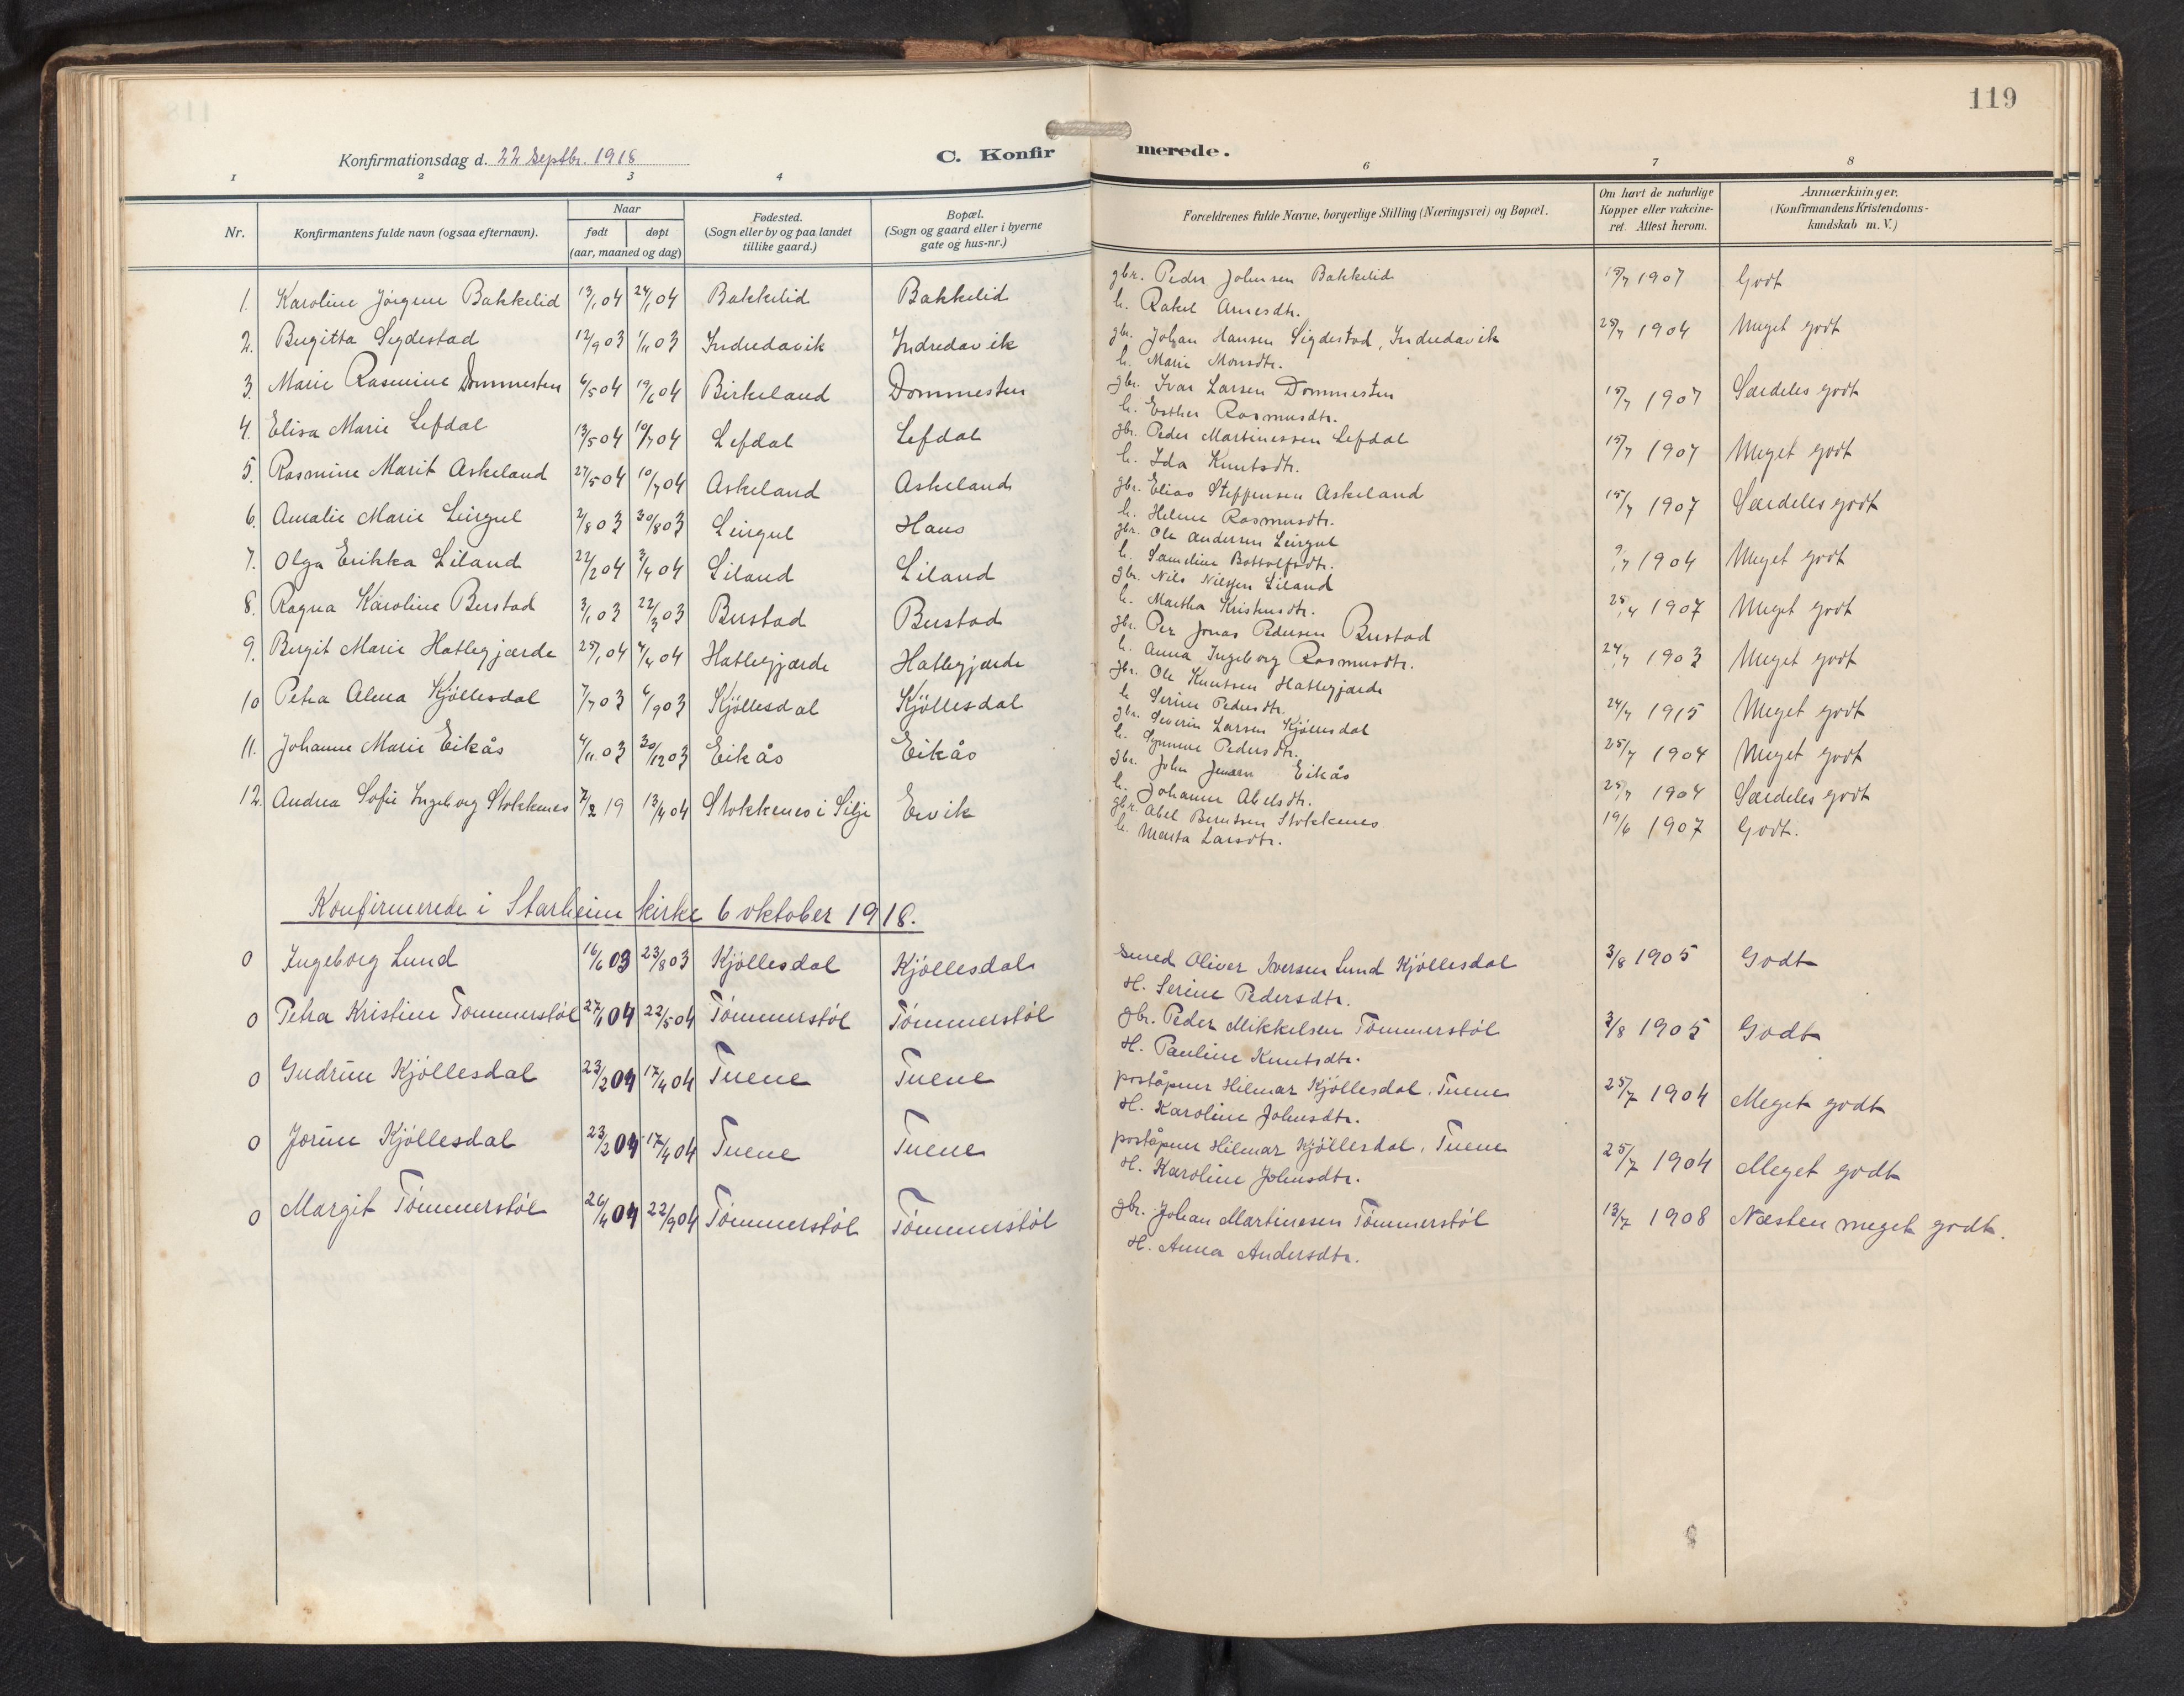 119
Konfirmationsdag d. 22 Septbr. 1918
C. Konfirmerede.
1 2 3 4 6 7 8
Nr. Konfirmantens fulde navn (ogsaa efternavn). Naar født døpt (aar, maaned og dag) Fødested. (Sogn eller by og paa landet tillike gaard.) Bopæl. (Sogn og gaard eller i byerne gate og hus-nr.) Forældrenes fulde Navne, borgerlige Stilling (Næringsvei) og Bopæl. Om havt de naturlige Kopper eller vakcineret. Attest herom. Anmærkninger. (Konfirmandens Kristendomskundskab m. V.)
1. Karoline Jörgine Bakkelid 13/1 04 24/1 04 Bakkelid Bakkelid gbr. Peder Johnsen Bakkelid 15/7 1907 Godt
h. Rakel Arnesdtr.
2. Birgitta Sigdestad 12/9 03 1/11 03 Indredavik Indredavik gbr. Johan Hansen Sigdestad, Indredavik 25/7 1904 Meget godt
h. Marie Monsdtr.
3. Marie Rasmine Dommesten 6/5 04 19/6 04 Birkeland Dommesten gbr. Ivar Larsen Dommesten 15/7 1907 Særdeles godt
h. Esther Rasmusdtr.
4. Elisa Marie Lefdal 13/5 04 10/7 04 Lefdal Lefdal gbr. Peder Martinessen Lefdal 15/7 1907 Meget godt
h. Ida Knutsdtr.
5. Rasmine Marit Askeland 27/5 04 10/7 04 Askeland Askeland gbr. Elias Steffensen Askeland 15/7 1907 Særdeles godt
h. Helene Rasmusdtr.
6. Amalie Marie Leirgul 2/8 03 30/8 03 Leirgul Haus gbr. Ole Andersen Leirgul 9/7 1904 Meget godt
h. Sameline Bottolfsdtr.
7. Olga Erikka Liland 22/2 04 3/4 04 Liland Liland gbr. Nils Nilssen Liland 25/4 1907 Meget godt
h. Martha Kristensdtr.
8. Ragna Karoline Berstad 3/1 03 22/3 03 Berstad Berstad gbr. Per Jonas Pedersen Berstad 24/7 1903 Meget godt
h. Anna Ingeborg Rasmusdtr.
9. Bergit Marie Hatlegjærde 25/1 04 4/4 04 Hatlegjærde Hatlegjærde gbr. Ole Knutsen Hatlegjærde 24/7 1915 Meget godt
h. Serine Pedersdtr.
10 Petra Alma Kjöllesdal 7/7 03 6/9 03 Kjöllesdal Kjöllesdal gbr. Severin Larsen Kjöllesdal 25/7 1904 Meget godt
h. Synneve Pedersdtr.
11. Johanne Marie Eikås 4/11 03 30/12 03 Eikås Eikås gbr. John Jensen Eikås 25/7 1904 Særdeles godt
h. Johanne Abelsdtr.
12. Andrea Sofie Ingeborg Stokkenes 7/2 19 13/4 04 Stokkenes i Silje Ervik gbr. Abel Berntsen Stokkenes 19/6 1907 Godt.
h. Marta Larsdtr.
Konfirmerede i Starheim kirke 6 oktober 1918.
0 Ingeborg Lund 16/6 03 23/8 03 Kjöllesdal Kjöllesdal Smed Oliver Iversen Lund Kjöllesdal 3/8 1905 Godt
H. Serine Pedersdtr.
0 Petra Kristine Tommerstöl 27/1 04 22/5 04 Tömmerstöl Tömmerstöl gbr. Peder Mikkelsen Tömmerstöl 3/8 1905 Godt
H. Pauline Knutsdtr.
0 Gudrun Kjöllesdal 23/2 04 17/4 04 Tuene Tuene poståpner Hilmar Kjöllesdal, Tuene 25/7 1904 Meget godt
H. Karoline Johnsdtr.
0 Jorun Kjöllesdal 23/2 04 17/4 04 Tuene Tuene poståpner Hilmar Kjöllesdal, Tuene 25/7 1904 Meget godt
H. Karoline Johnsdtr.
0 Margit Tömmerstöl 26/4 04 22/9 04 Tömmerstöl Tömmerstöl gbr. Johan Martinesen Tömmerstöl 13/7 1908 Næsten meget godt.
H. Anna Andersdtr.